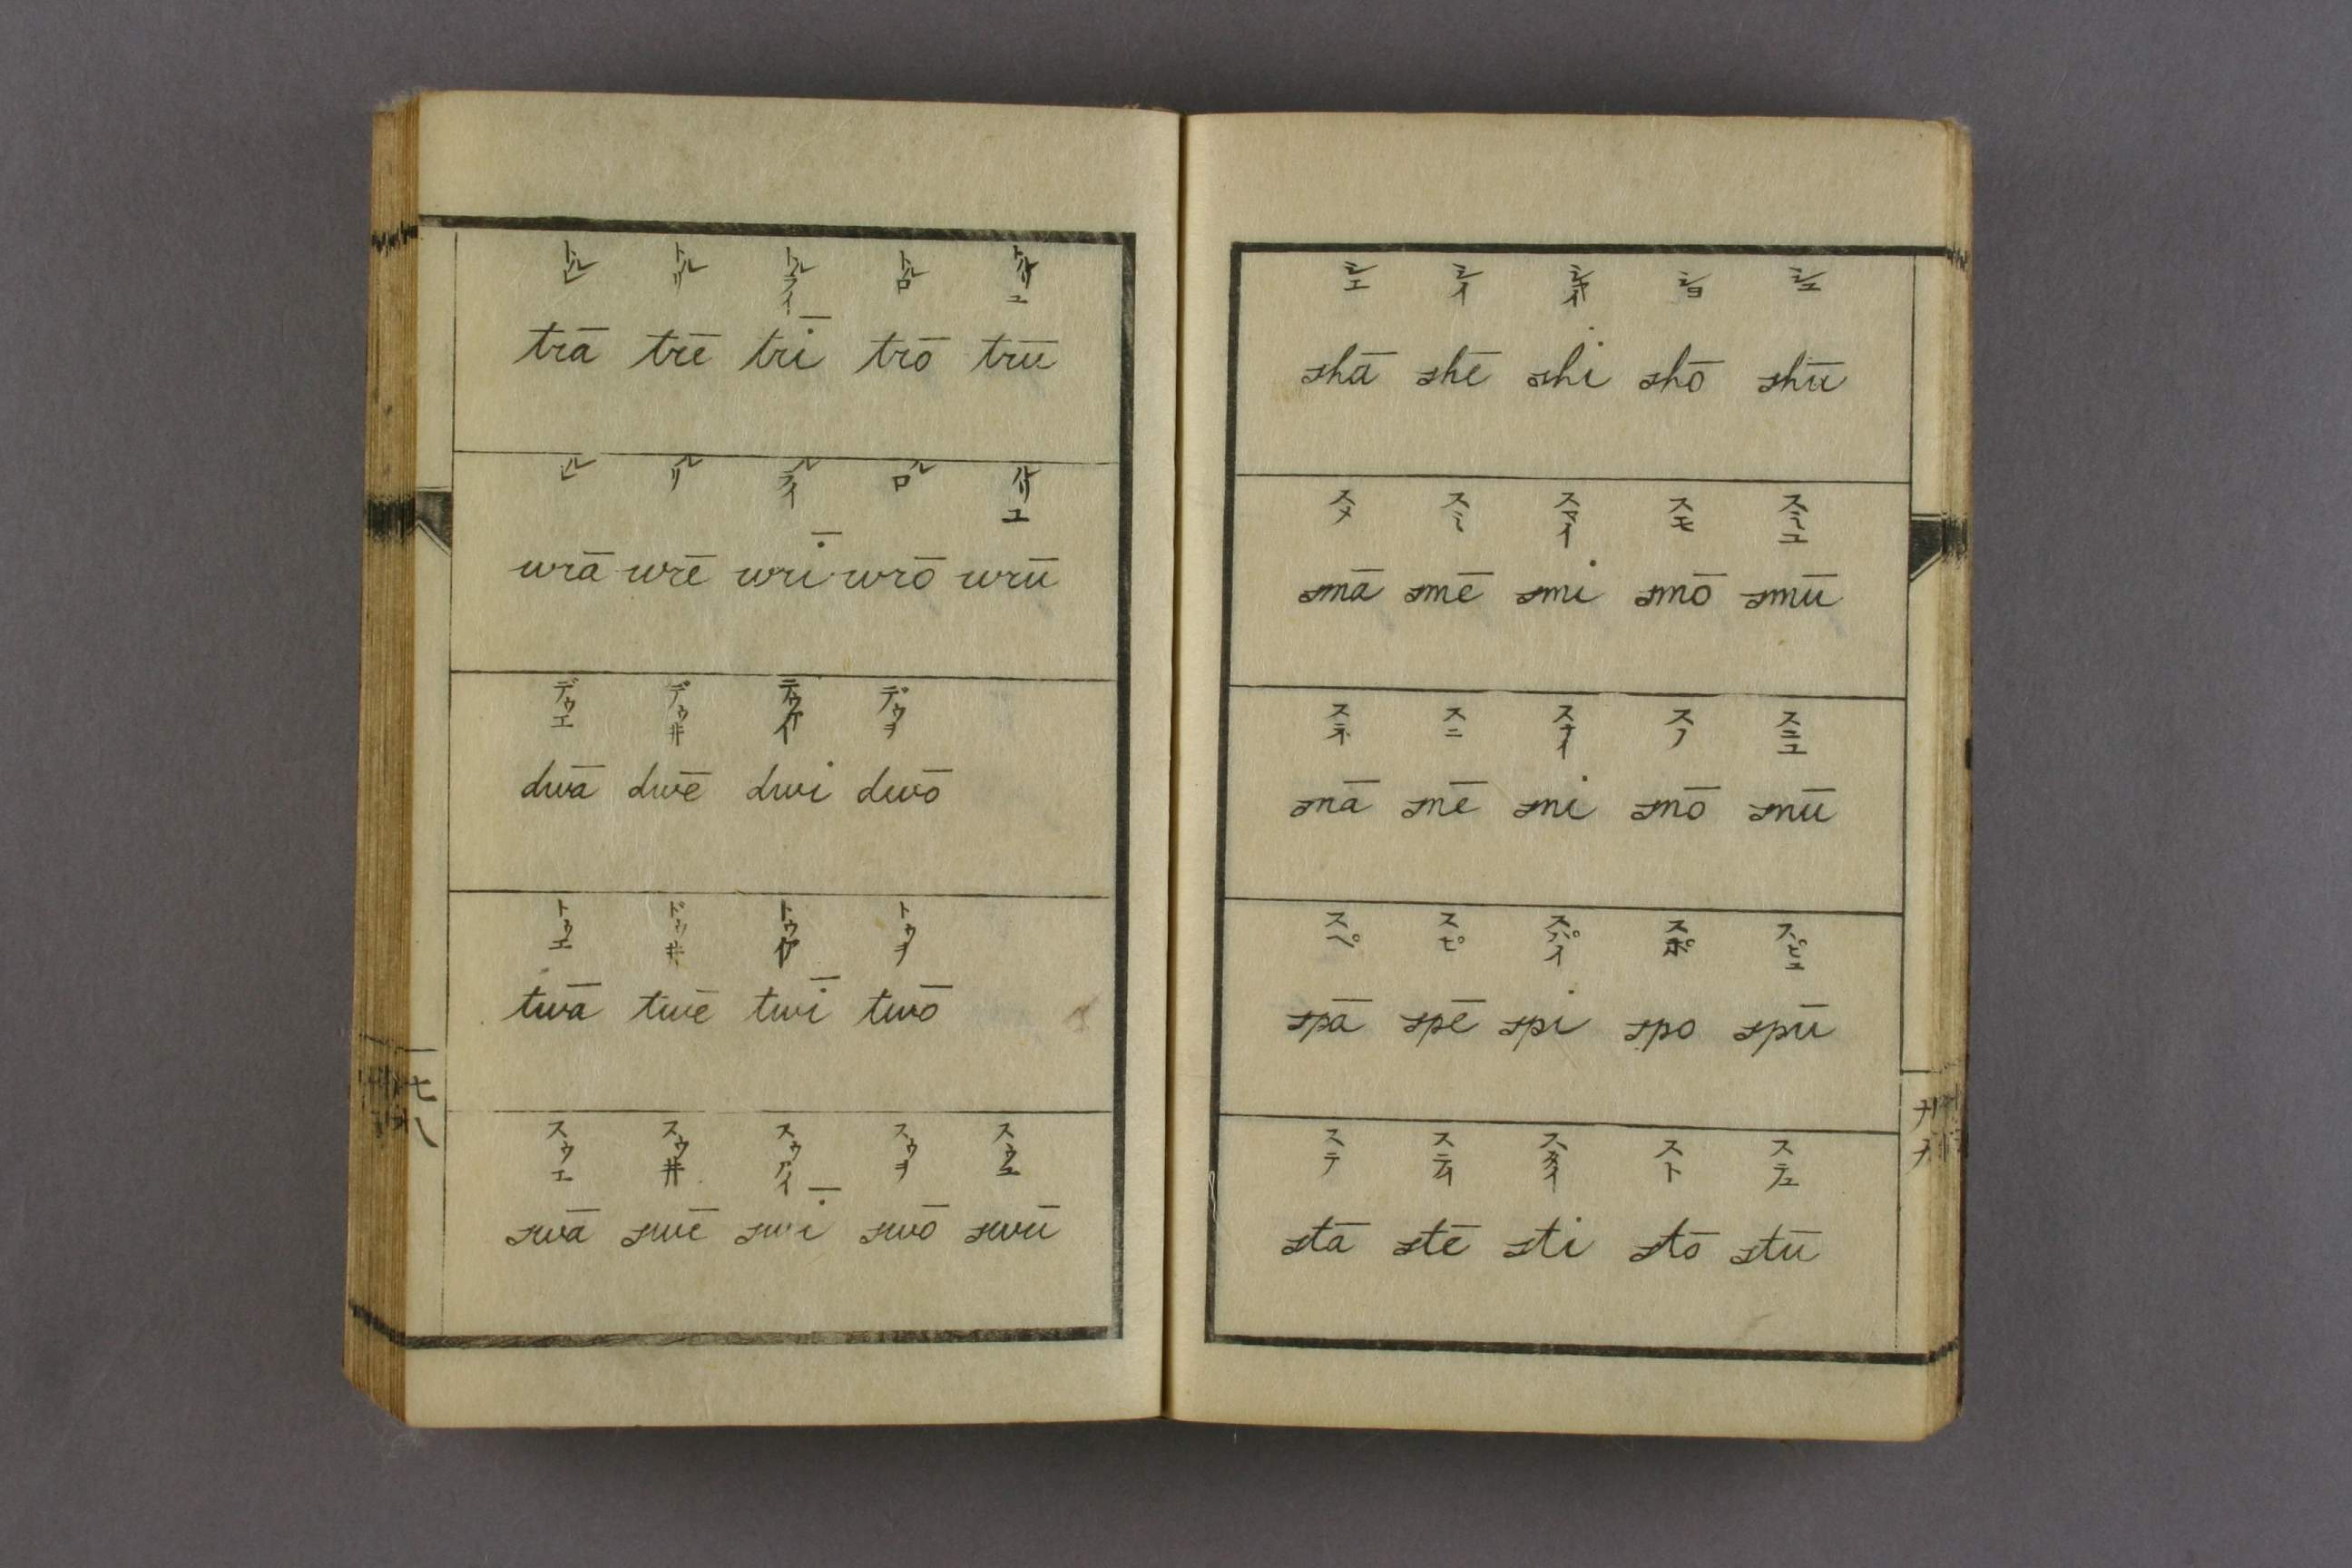 トルレ トルリ トルライ トルロ トルリユ
trā trē trī trō trū
ルレ ルリ ルライ ルロ ルリユ
wrā wrē wrī wrō wrū
デウエ デウヰ デウヲ
dwā dwē dwi dwō
トウエ ドウヰ トウヲ
twā twē twī twō
スウエ スウヰ スウアイ スウヲ スウユ
swā swē swī swō swū
シエ シイ シヤイ シヨ シユ
shā shē shi shō shū
スメ スミ スマイ スモ スミユ
smā smē smi smō smū
スネ スニ スナイ スノ スニユ
snā snē sni snō snū
スペ スピ スパイ スポ スピユ
spā spē spi spo spū
ステ ステイ スタイ スト ステユ
stā stē sti stō stū